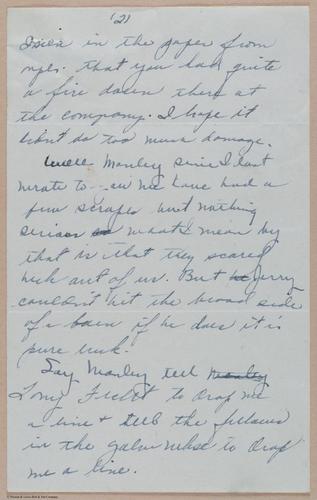 (2)
I see in the paper from
mpls. that you had quite
a fire down there at
the company. I hope it
didn't do too much damage.
Well Manley since I last
wrote to you we have had a
few scrapes but nothing
serious what I mean by
that is that they scared
heck out of us. But Jerry
couldn't hit the broad side
of a barn if he does it is
pure luck.
Say Manley tell Manley
Long to drop me
a line + tell the fellows
in the to drop
me a line.